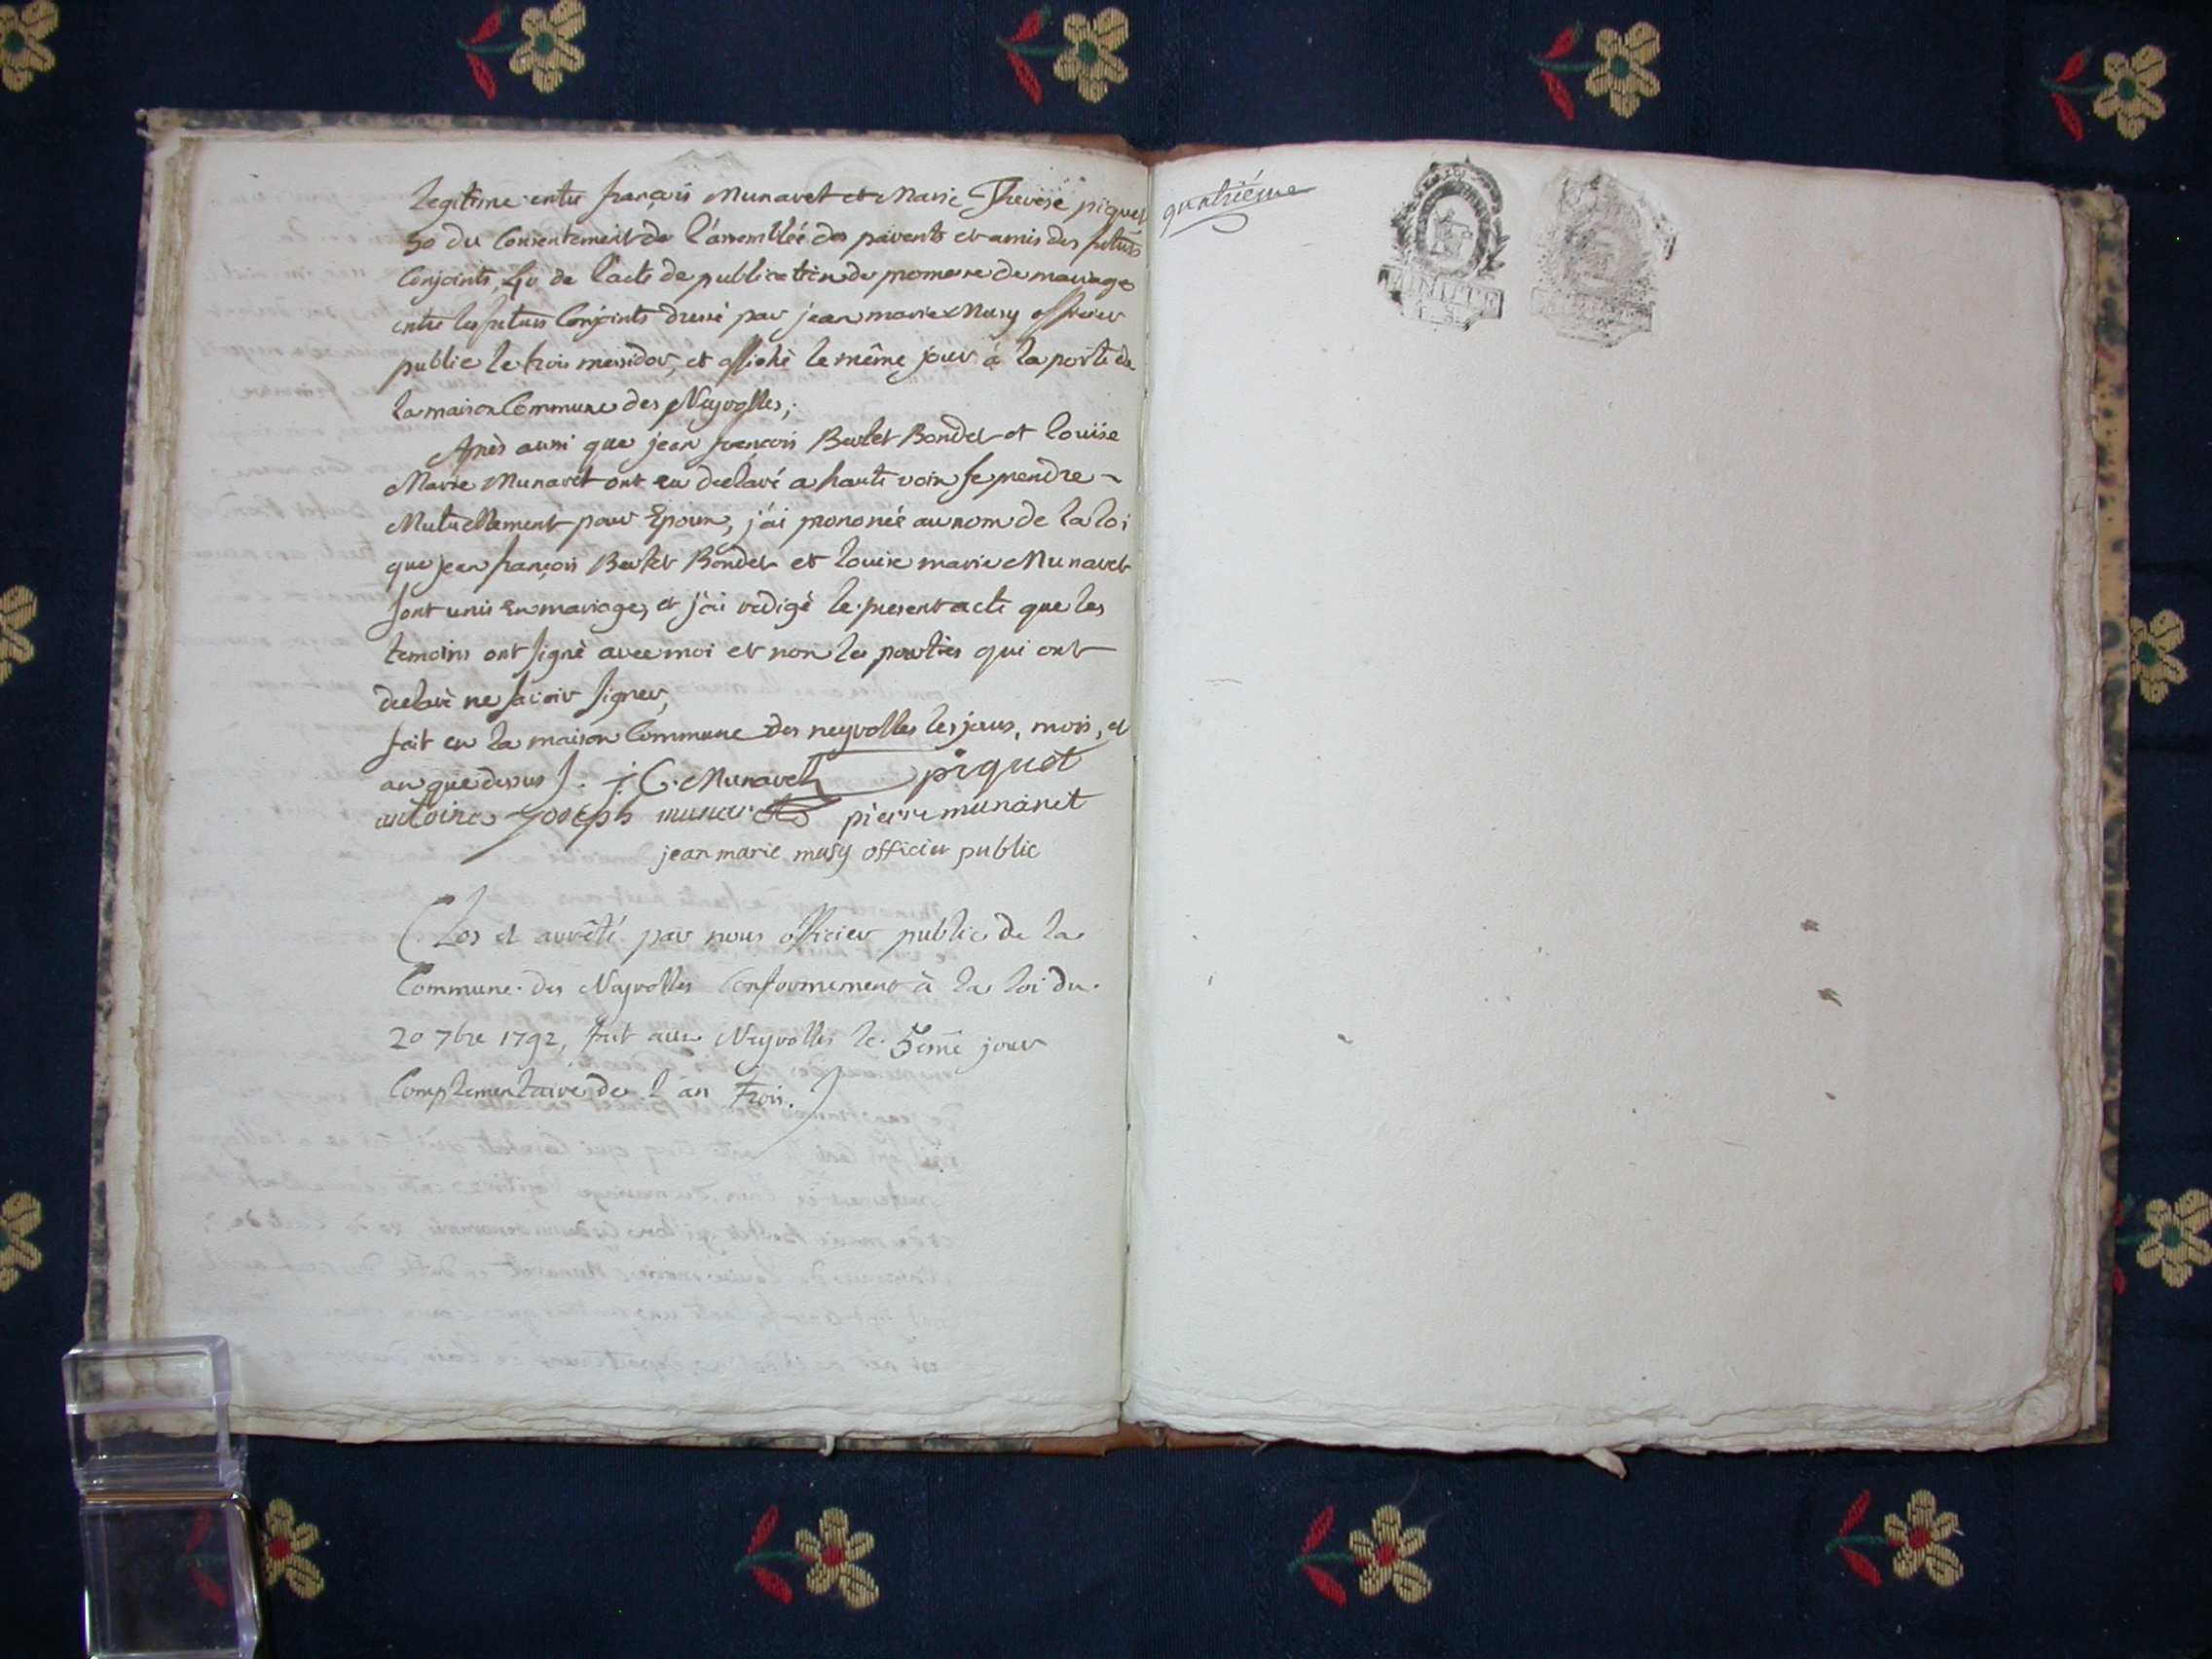 legitime entre françois Munaret et Marie Therese piquet
3o du Consentement de l'assemblée des parents et amis des futurs
Conjoints, 4o de l'acte de publication de promesse de mariage
entre les futurs Conjoints dressé par jean marie Musy officier
public le trois messidor, et affiché le même jour à la porte de
la maison Commune des Neyrolles;
Après aussi que jean françois Berlet Bondet et louise
Marie Munaret ont eu declaré a haute voix se prendre
Mutuellement pour Epoux, j'ai prononcé au nom de la loi
que jean françois Berlet Bondet et louise marie Munaret
sont unis en mariage, et j'ai redigé le present acte que les
temoins ont signé avec moi et non les parties qui ont
declaré ne savoir signer,
fait en la maison Commune des neyrolles les jour, mois, et
an que dessus. C. Munaret piquet
antoine Joseph munaret pierre munaret
jean marie musy officier public
Clos et arrêté par nous officier public de la
Commune des Neyrolles Conformement à la loi du
20 7bre 1792, fait aux Neyrolles le 5eme jour
Complementaire de l'an trois.
quatriéme